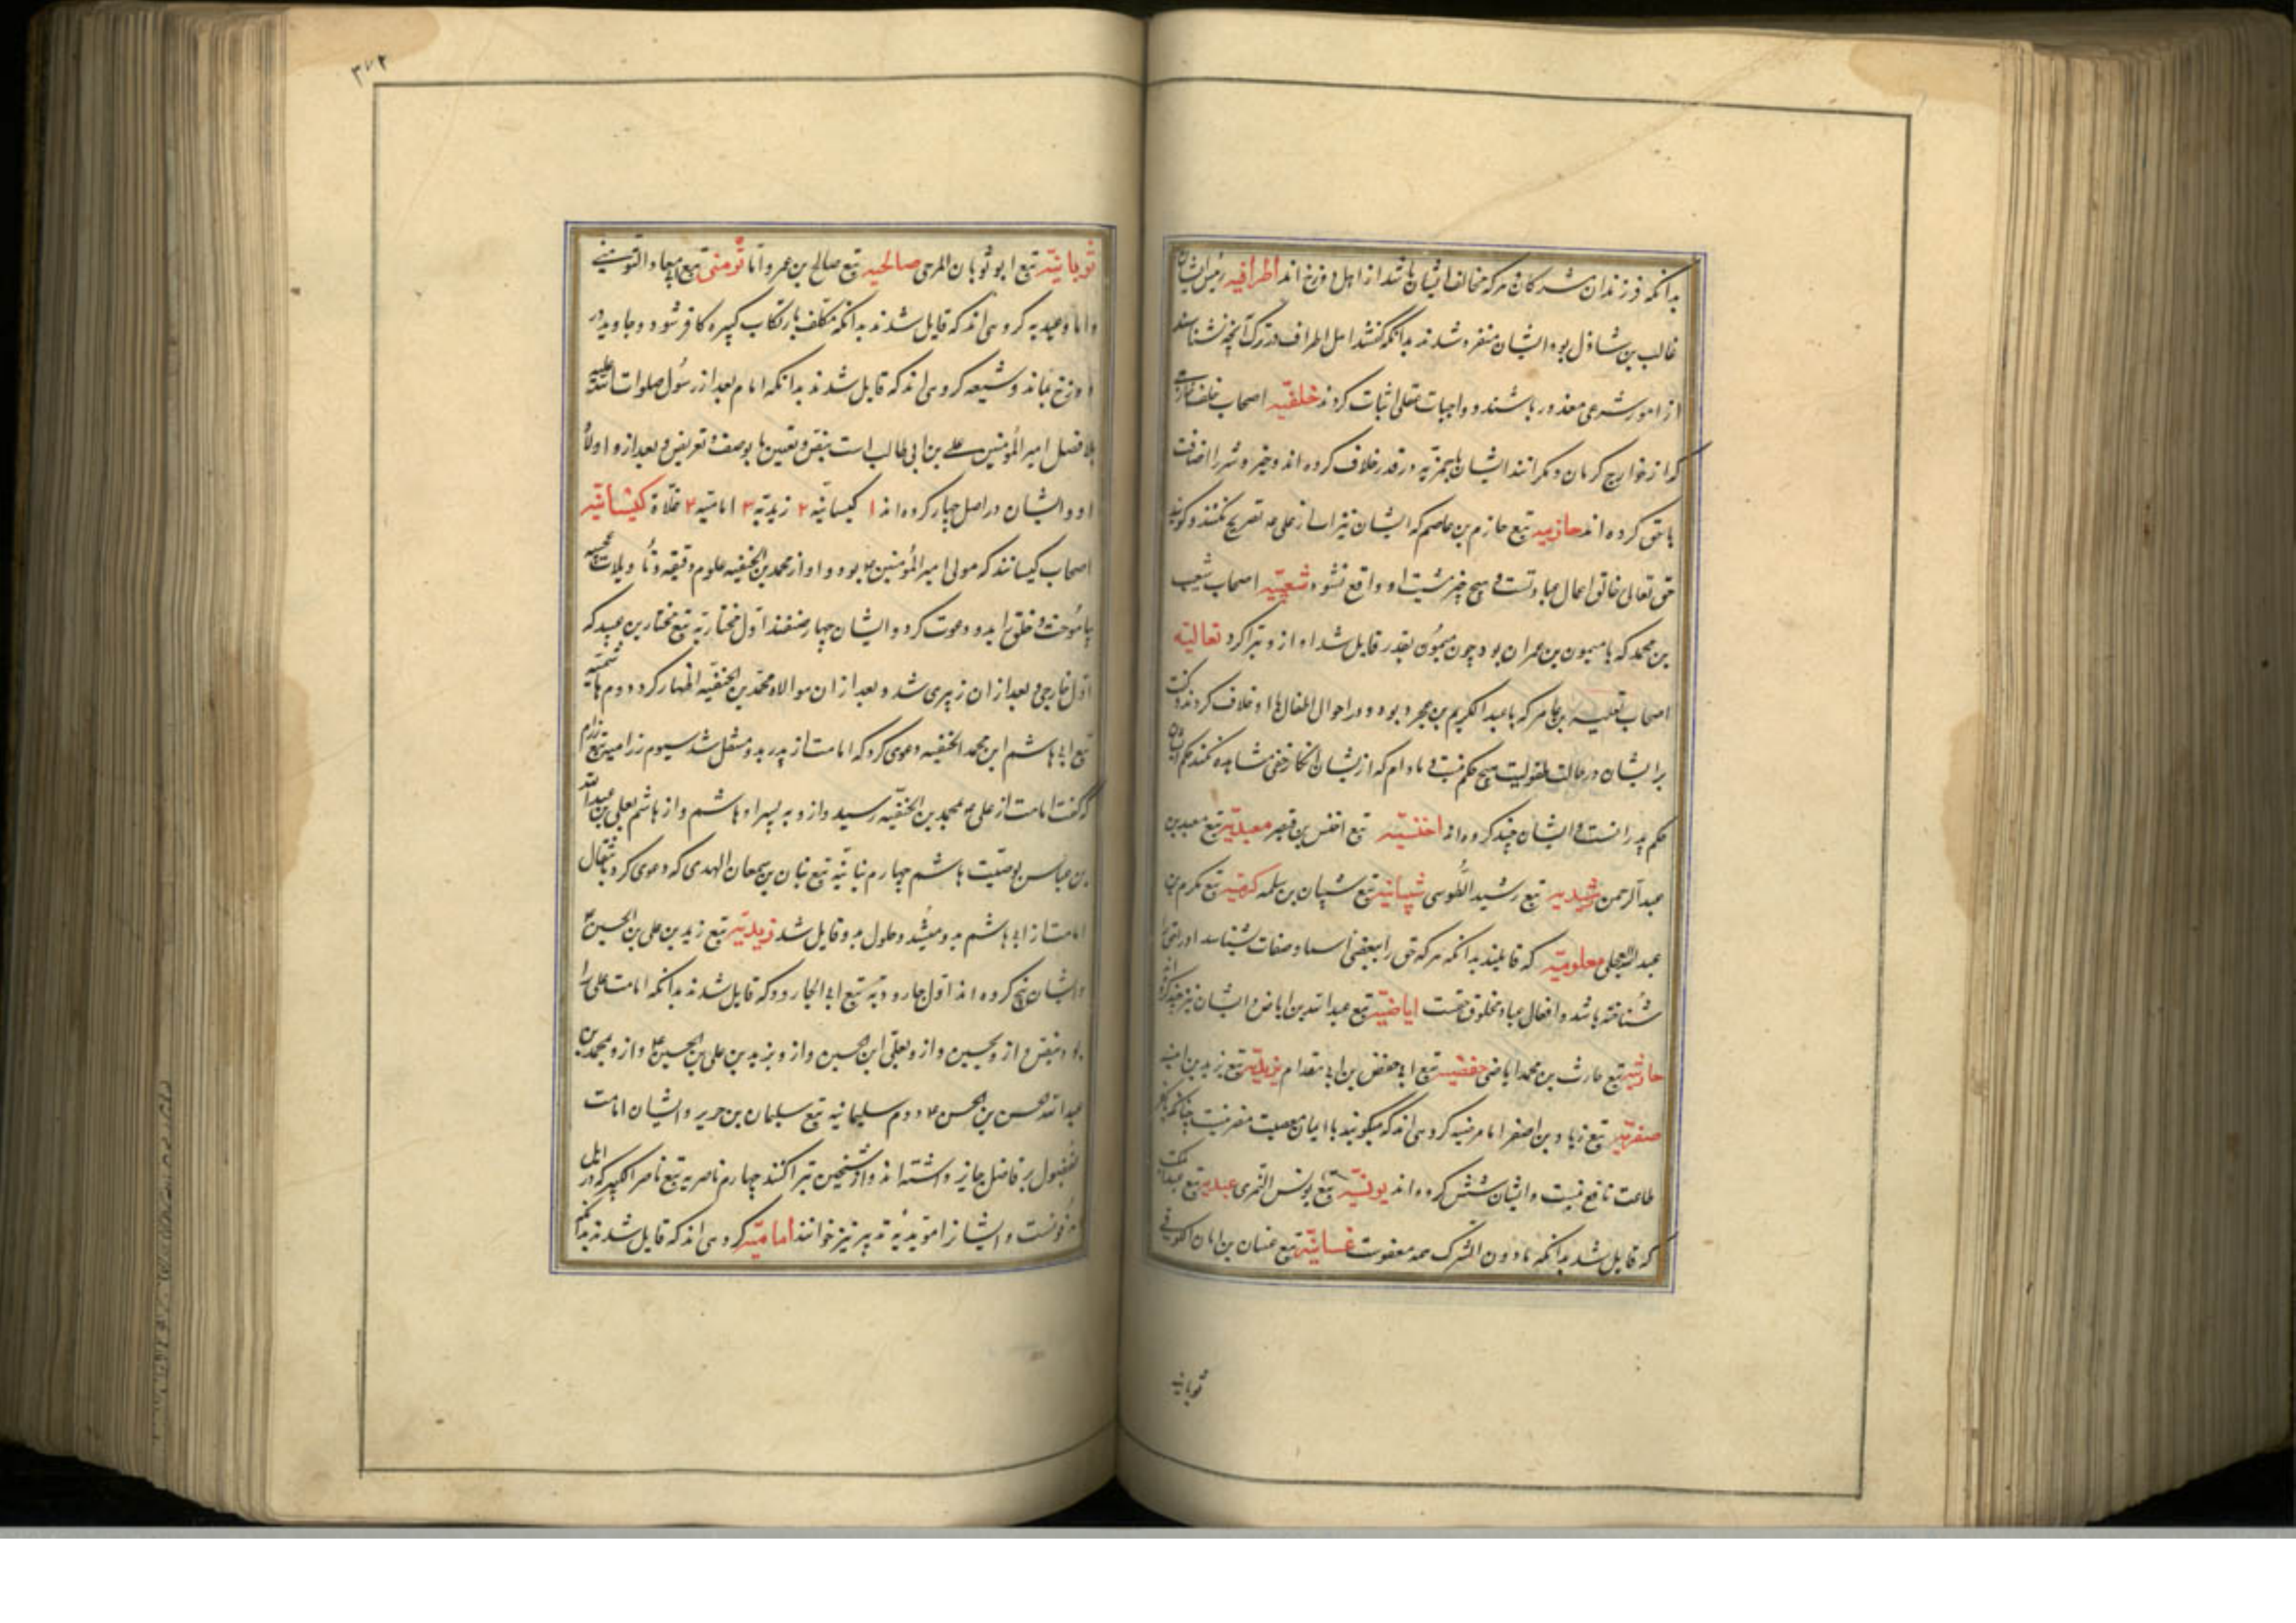 بدانکه فرزندان مشرکان هرکه مخالف ایشان باشد از اهل دوزخ اند اطرافیه رئیس ایشان
غالب بن شاذل بود و ایشان منفرد شدند بدانکه گفتند اهل اطراف در ترک آنچه نشناسند
از امور شرعی معذور باشند و واجبات عقلی اثبات کردند خلفیّه اصحاب خلف خارجی
که از خوارج کرمان و مکرانند ایشان با حمزیه در قدر خلاف کرده اند و خیر و شر را اضافت
با حق کرده اند حازمیه تبع حازم بن عاصم که ایشان نیز از علی ع تصریح نکنند و گویند
حق تعالی خالق اعمال عبادتست و هیچ چیز بی مشیت او واقع نشود شعیبیّه اصحاب شعیب
بن محمد که با میمون بن عمران بود چون میمون بقدر قایل شد او از و تبرا کرد ثعالبیّه
اصحاب ثعلبه بن عامر که با عبدالکریم بن عجرد بود و در احوال اطفال با او خلاف کردند و گفت
بر ایشان در حالت طفولیت هیچ حکم نیست و مادام که از ایشان انکار حق مشاهده نکنند حکم ایشان
حکم پدر انست و ایشان چند گروه اند اخنسیّه تبع اخنس بن قیس معبدیّه تبع معبد بن
عبدالرحمن رشیدیه تبع رشید الطوسی شیبانیّه تبع شیبان بن سلمه مکرمیّه تبع مکرم بن
عبدالله العجلی معلومیّه که قایلند بدانکه هرکه حق را ببعضی اسما و صفات شناسد او را
شناخته باشد و افعال عباد مخلوق حقست اباضیّه تبع عبدالله بن اباض و ایشان نیز چند گروه اند
حارثیّه تبع حارث بن محمد اباضی حفصیّه تبع ابی حفص بن ابی مقدام یزیدیّه تبع یزید بن انیسه
صفریّه تبع زیاد بن اصفر اما مرجئیه گروهی اند که میگویند با ایمان معصیت مضر نیست چنانکه با کفر
طاعت نافع نیست و ایشان شش گروه اند یونسیّه تبع یونس النمری عبیدیه تبع عبید
که قایل شد بدانکه مادون الشرک همه معفوست غسانیّه تبع غسان بن ابان الکوفی
ثوبانیه
۳۷۲
ثوبانیّه تبع ابو ثوبان المرجی صالحیه تبع صالح بن عمرو اما تومنی تبع ابی معاذ التومنی
و اما وعیدیه گروهی اند که قایل شدند بدانکه مکلف بارتکاب کبیره کافر شود و جاوید در
دوزخ بماند و شیعه گروهی اند که قایل شدند بدانکه امام بعد از رسول صلوات الله علیه
بلا فصل امیرالمؤمنین علی بن ابی طالب است بنص و تعیین یا بوصف و تعریض و بعد از و اولاد
او و ایشان در اصل چهار گروه اند ۱ کیسانیّه ۲ زیدیّه ۳ امامیّه ۴ غلاة کیسانیّه
اصحاب کیسانند که مولی امیرالمؤمنین ع بود و او از محمد بن الحنفیه علوم دقیقه و تأویلات عجیبه
بیاموخت و خلق را بدو دعوت کرد و ایشان چهار صنفند اول مختاریّه تبع مختار بن عبید که
اول خارجی و بعد از ان زبیری شد و بعد از ان موالاة محمد بن الحنفیّه اظهار کرد دوم هاشمیه
تبع ابی هاشم ابن محمد الحنفیه دعوی کرد که امامت از پدر بدو منتقل شد سیوم رزامیه تبع رزام
که گفت امامت از علی ع بمحمد بن الحنفیّه رسید و از و به پسر او هاشم و از هاشم بعلی بن عبدالله
بن عباس بوصیّت هاشم چهارم بنانیّه تبع بنان بن سمعان الهندی که دعوی کرد بانتقال
امامت از ابی هاشم بدو و حلول بدو قایل شد زیدیّه تبع زید بن علی بن الحسین ع
و ایشان پنج گروه اند اول جارودیّه تبع ابی الجارود که قایل شدند بدانکه امامت علی را
بود بنص و از و بحسین و از و بعلی ابن الحسین و از و بزید بن علی بن الحسین ع و از و بمحمد بن
عبدالله الحسن بن الحسن ع دوم سلیمانیه تبع سلیمان بن جریر و ایشان امامت
مفضول بر فاضل جایز داشته اند و از شیخین تبرا کنند چهارم ناصریه تبع ناصر الکبیر که در آمل
مدفونست و ایشان را مؤیدیّه نیز خوانند امامیّه گروهی اند که قایل شدند بدانکه